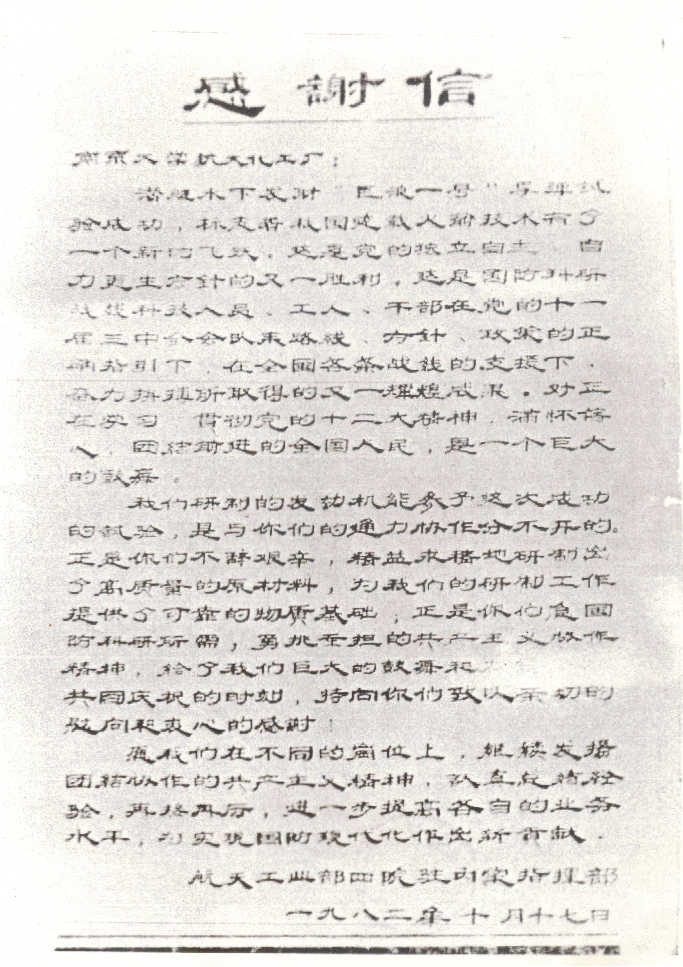 感謝信
南京大学 化工厂：
潜艇水下发射“巨浪一号”导弹试
验成功，标志着我国运载火箭技术有了
一个新的飞跃，这是党的独立自主、自
力更生方针的又一胜利，这是国防科研
战线科技人员、工人、干部在党的十一
届三中全会以来路线、方针、政策的正
确指引下，在全国各条战线的支援下，
奋力拼搏所取得的又一辉煌成果。对正
在学习、贯彻党的十二大精神，满怀信
心，团结前进的全国人民，是一个巨大
的鼓舞。
我们研制的发动机能参予这次成功
的试验，是与你们的通力协作分不开的。
正是你们不辞艰辛，精益求精地研制出
了高质量的原材料，为我们的研制工作
提供了可靠的物质基础；正是你们急國
防科研所需，勇挑重担的共产主义协作
精神，给了我们巨大的鼓舞和力
共同庆祝的时刻，特向你们致以亲切的
慰问和衷心的感謝！
愿我们在不同的崗位上，継续发揚
团结协作的共产主义精神，认真总结经
验，再接再厉，进一步提高各自的业务
水平，为实现国防现代化作出新貢献．
航天工业部四院驻内蒙指揮部
一九八二年十月十七日